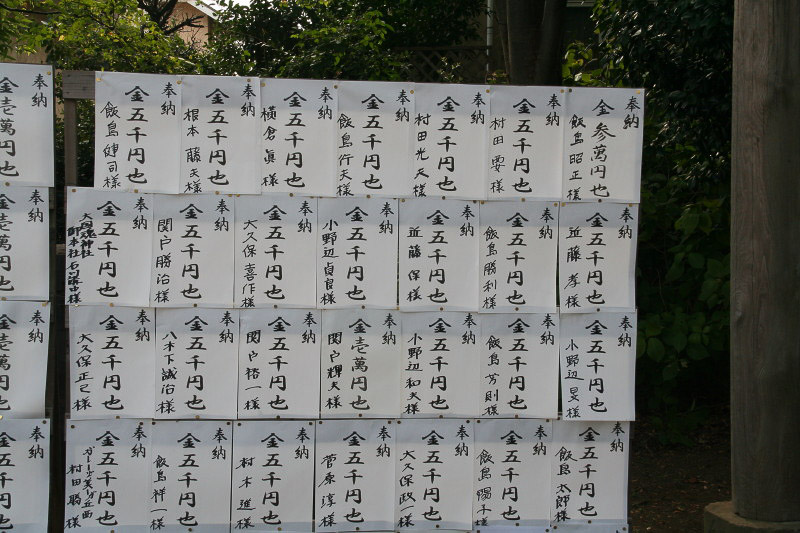 奉納
金参萬円也
飯島昭正様
奉納
金五千円也
村田要様
奉納
金五千円也
村田光夫様
奉納
金五千円也
飯島行夫様
奉納
金五千円也
横倉眞様
奉納
金五千円也
根本藤夫様
奉納
金五千円也
飯島健司様
奉納
金壱萬円也
奉納
金五千円也
近藤孝様
奉納
金五千円也
飯島勝利様
奉納
金五千円也
近藤保様
奉納
金五千円也
小野辺貞良様
奉納
金五千円也
大久保喜作様
奉納
金五千円也
関戸勝治様
奉納
金五千円也
大國魂神社
奉納
金壱萬円也
奉納
金五千円也
小野辺旻様
奉納
金五千円也
飯島芳則様
奉納
金五千円也
小野辺和夫様
奉納
金壱萬円也
関戸輝夫様
奉納
金五千円也
関戸裕一様
奉納
金五千円也
八木下誠治様
奉納
金五千円也
大久保正己様
奉納
金壱萬円也
奉納
金五千円也
飯島太郎様
奉納
金五千円也
奉納
金五千円也
大久保政一様
奉納
金五千円也
菅原淳様
奉納
金五千円也
村木進様
奉納
金五千円也
飯島祥一様
奉納
金五千円也
村田聡様
奉納
金五千円也